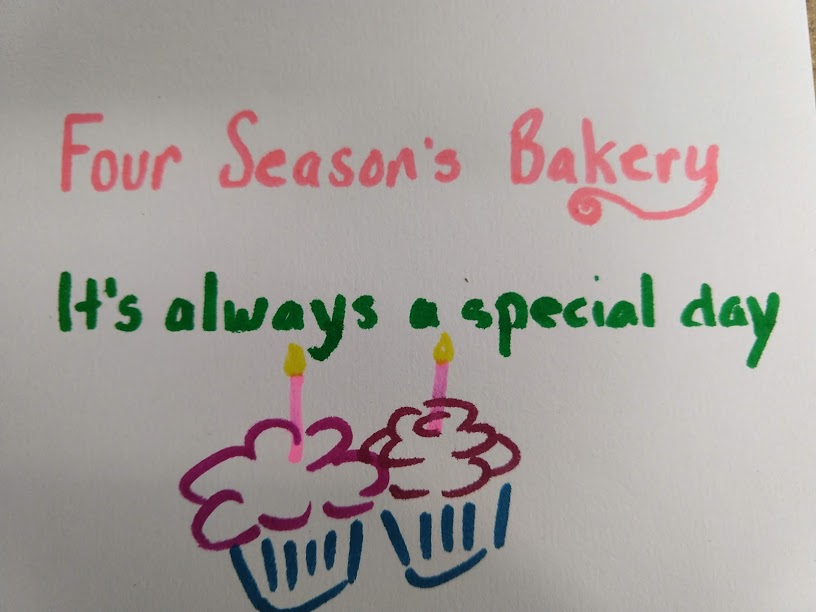 Four Season's Bakery
It's always a special day